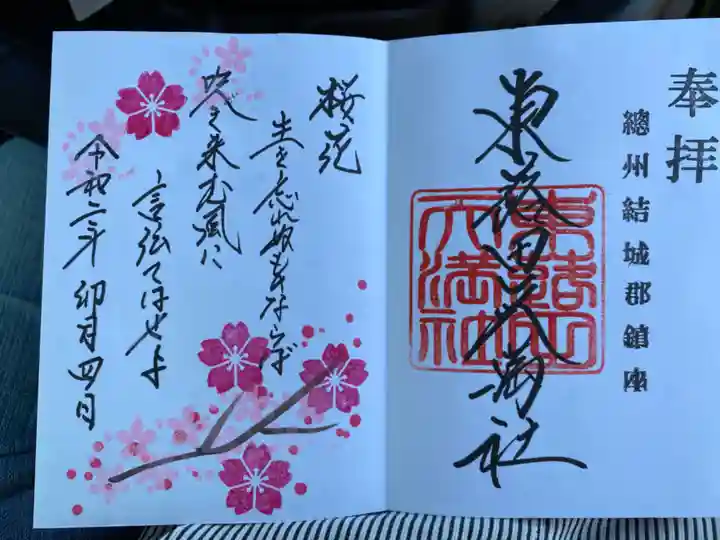 奉拝
總州結城郡鎮座
東蕗田天満社
東蕗田天満社
桜花
主を忘れぬものならば
吹き来む風に
言伝てはせよ
令和二年 卯月四日